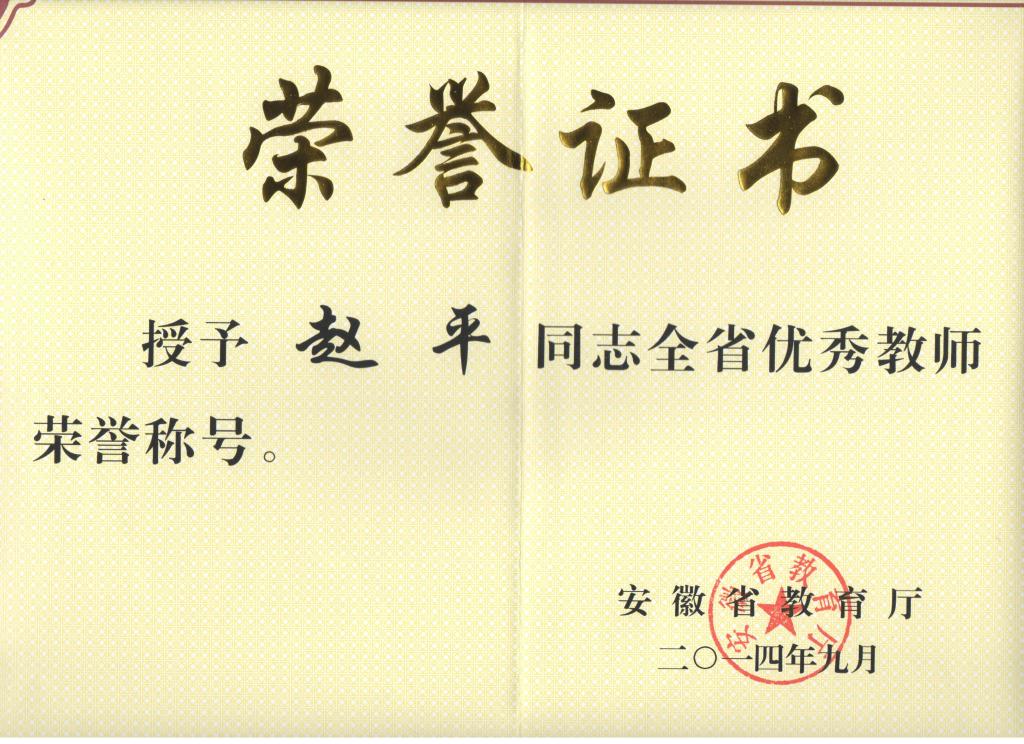 荣誉证书
授予 赵平 同志全省优秀教师
荣誉称号。
安徽省教育厅
二〇一四年九月
安徽省教育厅